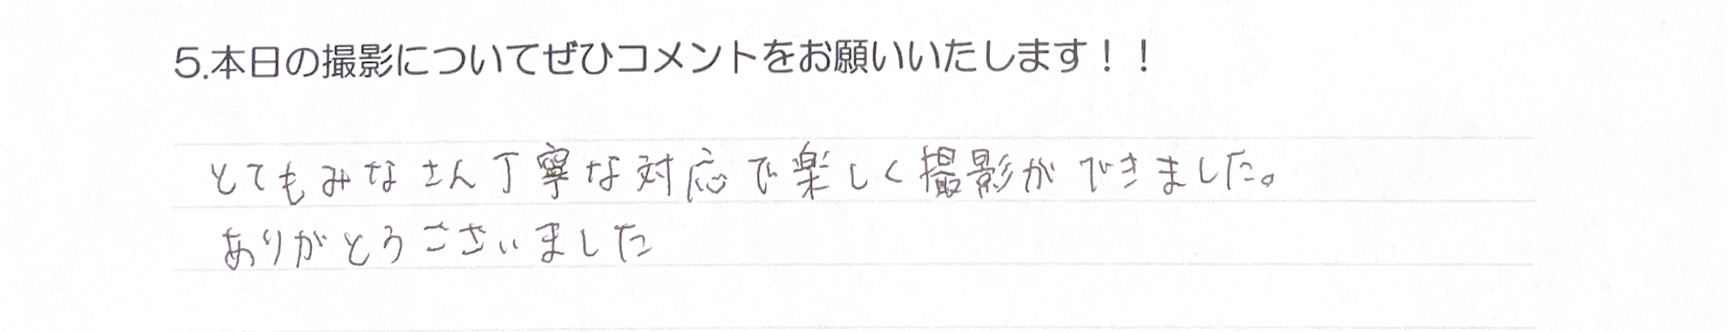 5.本日の撮影についてぜひコメントをお願いいたします！！
とてもみなさん丁寧な対応で楽しく撮影ができました。
ありがとうございました